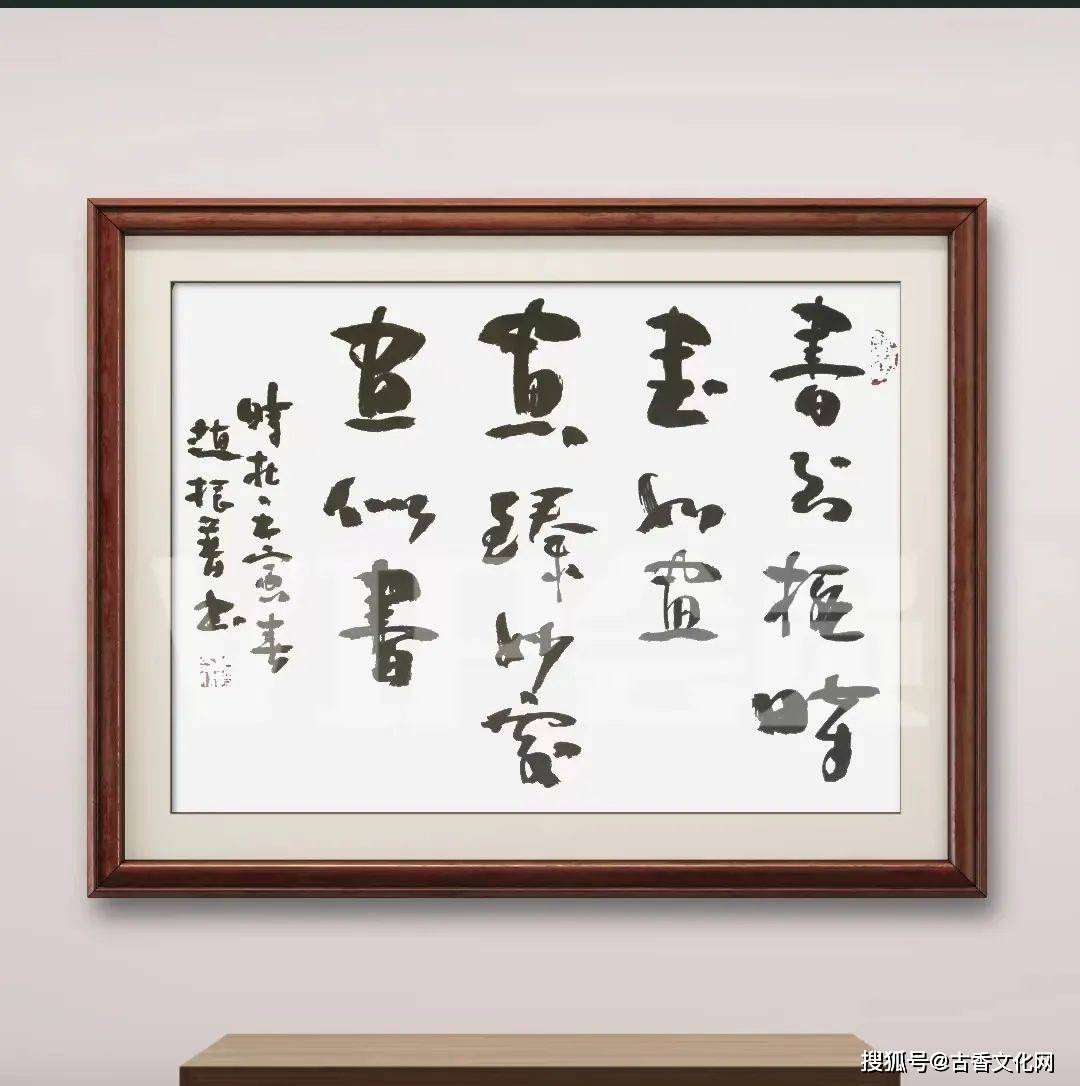 書到極
書如畫
畫臻妙處
畫似書
時在壬寅春
趙振普書
搜狐号@古香文化网